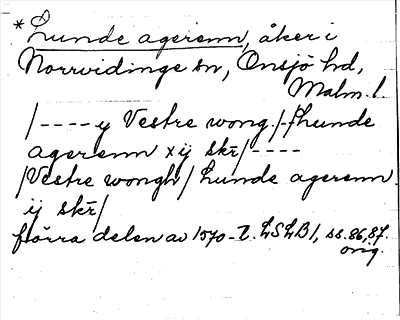 * Lunde agerenn, åker i
Norrvidinge sn, Onsjö hd,
Malm. l.
/---- y Vestre wong./-/Lunde
agerenn x ij skr/----
/Vestre wongh/ Lunde agerenn
ij skr/
förra delen av 1570-t. LSLB1, ss. 86, 87.
orig.